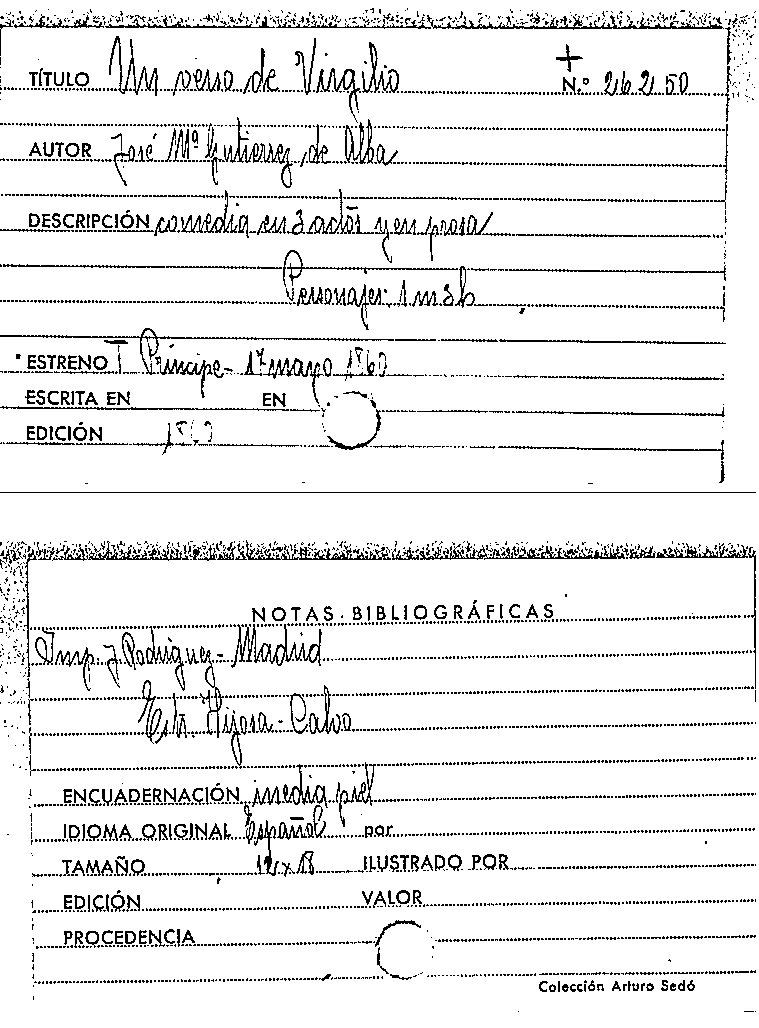 TÍTULO Un verso de Virgilio + N.º 26250
AUTOR José Mª Gutierrez de Alba
DESCRIPCIÓN comedia en 3 actos y en prosa
Personajes: 1m 3h
ESTRENO T Príncipe - 17 mayo 1860
ESCRITA EN EN
EDICIÓN 1860
NOTAS BIBLIOGRÁFICAS
Imp. J Rodriguez - Madrid
Hijosa - Calvo
ENCUADERNACIÓN media piel
IDIOMA ORIGINAL Español por
TAMAÑO 12 x 18 ILUSTRADO POR
EDICIÓN VALOR
PROCEDENCIA
Colección Arturo Sedó